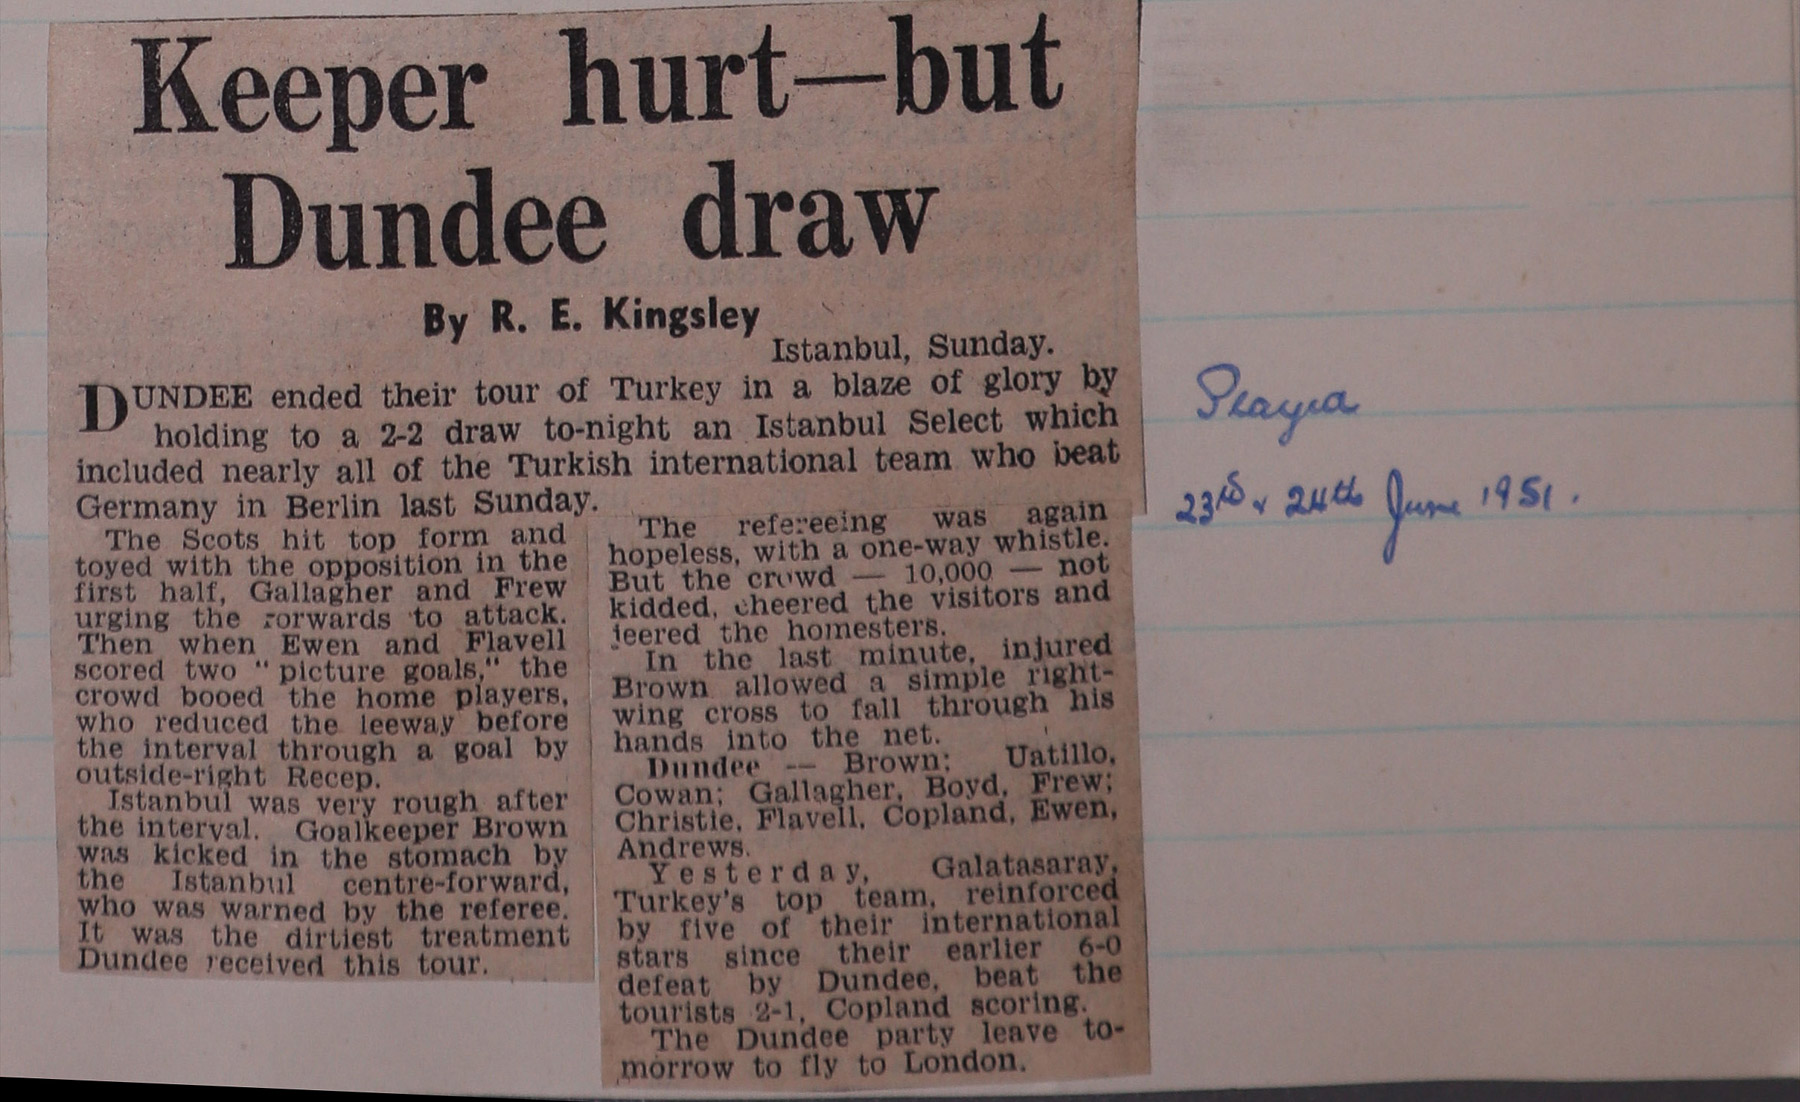 Keeper hurt—but
Dundee draw
By R. E. Kingsley
Istanbul, Sunday.
DUNDEE ended their tour of Turkey in a blaze of glory by
holding to a 2-2 draw to-night an Istanbul Select which
included nearly all of the Turkish international team who beat
Germany in Berlin last Sunday.
The Scots hit top form and
toyed with the opposition in the
first half, Gallagher and Frew
urging the forwards to attack.
Then when Ewen and Flavell
scored two "picture goals," the
crowd booed the home players,
who reduced the leeway before
the interval through a goal by
outside-right Recep.
Istanbul was very rough after
the interval. Goalkeeper Brown
was kicked in the stomach by
the Istanbul centre-forward,
who was warned by the referee.
It was the dirtiest treatment
Dundee received this tour.
The refereeing was again
hopeless, with a one-way whistle.
But the crowd — 10,000 — not
kidded, cheered the visitors and
jeered the homesters.
In the last minute, injured
Brown allowed a simple right-
wing cross to fall through his
hands into the net.
Dundee — Brown; Uatillo,
Cowan; Gallagher, Boyd, Frew;
Christie, Flavell, Copland, Ewen,
Andrews.
Yesterday, Galatasaray,
Turkey's top team, reinforced
by five of their international
stars since their earlier 6-0
defeat by Dundee, beat the
tourists 2-1, Copland scoring.
The Dundee party leave to-
morrow to fly to London.
Played
23rd & 24th June 1951.